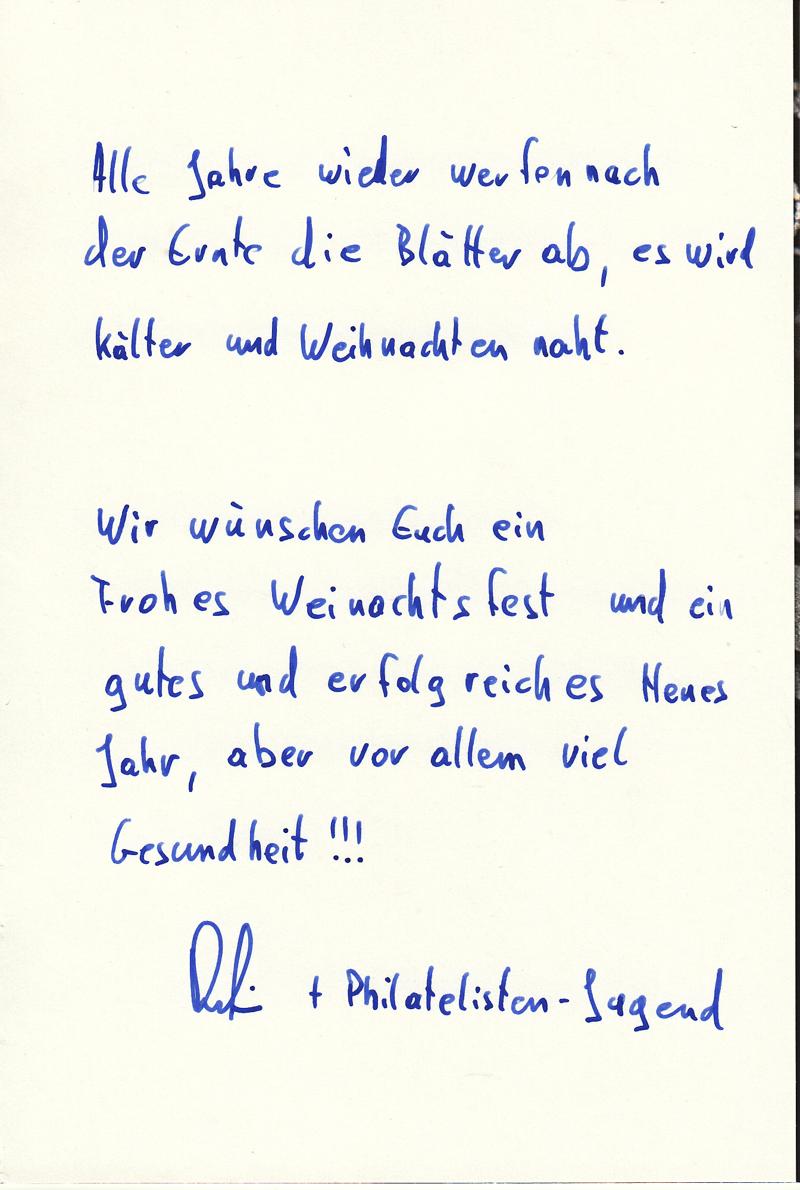 Alle Jahre wieder werfen nach
der Ernte die Blätter ab, es wird
kälter und Weihnachten naht.
Wir wünschen Euch ein
Frohes Weinachtsfest und ein
gutes und erfolgreiches Neues
Jahr, aber vor allem viel
Gesundheit !!!
+ Philatelisten-Jugend